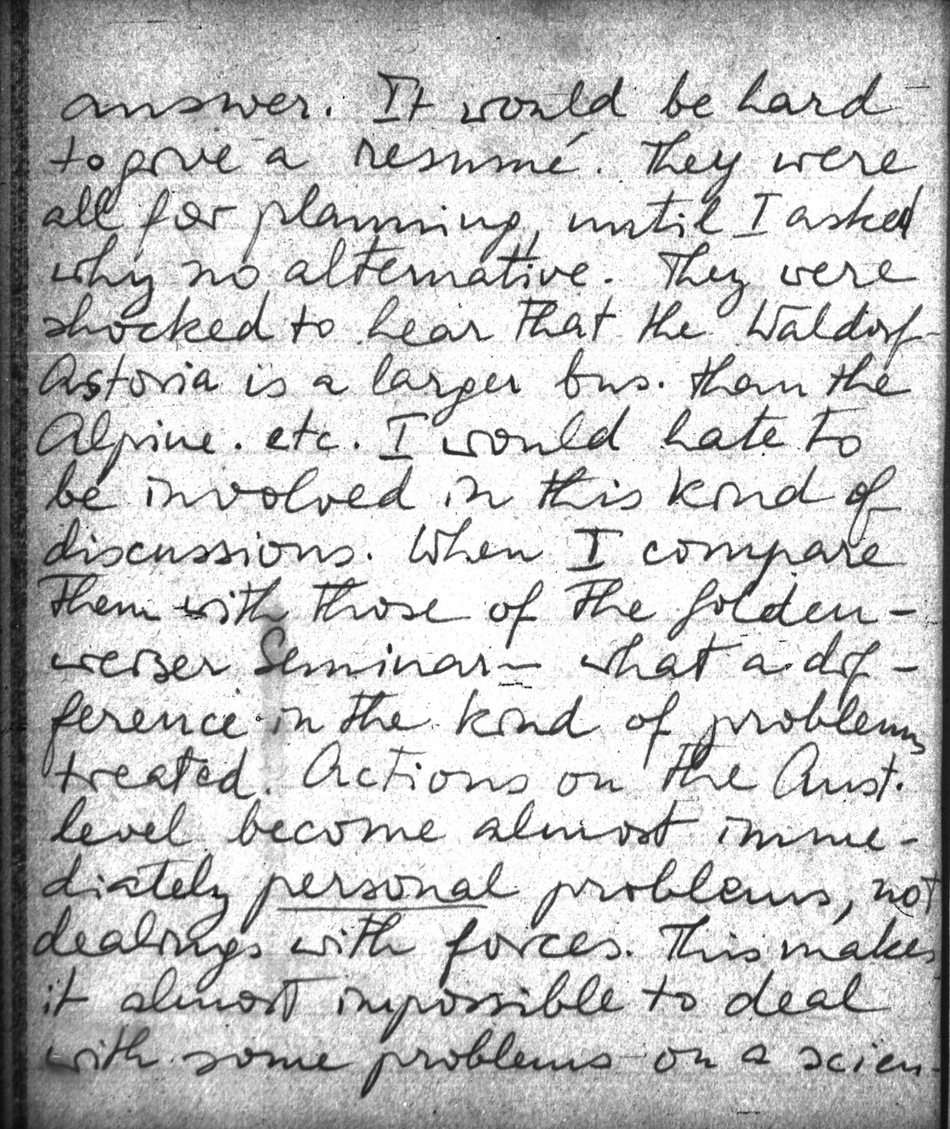 answer. It would be hard
to give a resumé. They were
all for planning, until I asked
why no alternative. They were
shocked to hear that the Waldorf-
Astoria is a larger bus. than the
Alpine. etc. I would hate to
be involved in this kind of
discussions. When I compare
them with those of the Golden-
weiser Seminar – what a dif-
ference in the kind of problems
treated. Actions on the Aust.
level become almost imme-
diately personal problems, not
dealings with forces. This makes
it almost impossible to deal
with some problems on a scien-